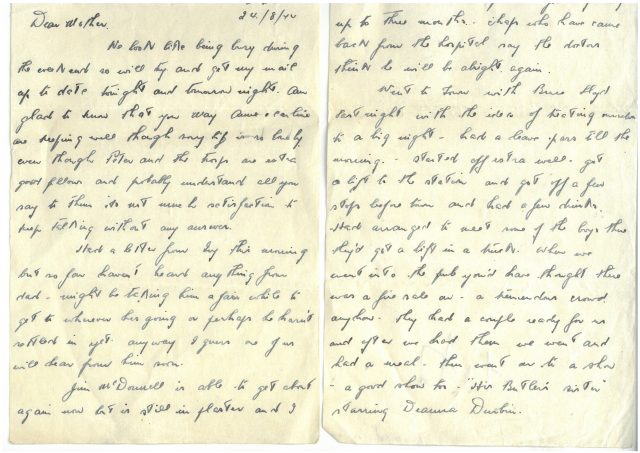 24/8/44
Dear Mother.
We look like being busy during
the weekend so will try and get my mail
up to date tonight and tomorrow night. Am
glad to know that you May Anne & Caroline
are keeping well though sorry Kip is so lonely
even though Peter and the horses are extra
good fellows and probably understand all you
say to them its not much satisfaction to
keep talking without any answer.
Had a letter from Ivy this morning
but so far haven't heard anything from
dad - might be taking him a fair while to
get to wherever his going or perhaps he hasn't
settled in yet. anyway I guess one of us
will hear from him soon.
Jim McDonnell is able to get about
again now but is still in plaster and I
up to three months. Chaps who have came
back from the hospital say the doctors
think he will be alright again.
Went to Town with Bruce Lloyd
last night with the idea of treating ourselves
to a big night - had a leave pass till the
morning - started off extra well - got
a lift to the station and got off a few
stops before town and had a few drinks.
Had arranged to meet some of the boys there
they'd got a lift in a truck. When we
went into the pub you'd have thought there
was a fire sale on - a tremendous crowd
anyhow. They had a couple ready for us
and after we had them we went and
had a meal. then went on to a show
- a good show too - 'His Butler's sister'
starring Deanna Durbin.